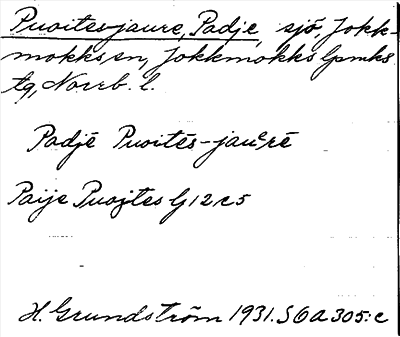 Puoites-jaure, Padje, sjö, Jokk-
mokks sn, Jokkmokks lpmks
tg, Norrb. l.
Padjē Puoitēs-jauᵋrē
Paije Puojtes G 12 c 5
H. Grundström 1931. S 6 a 305: c